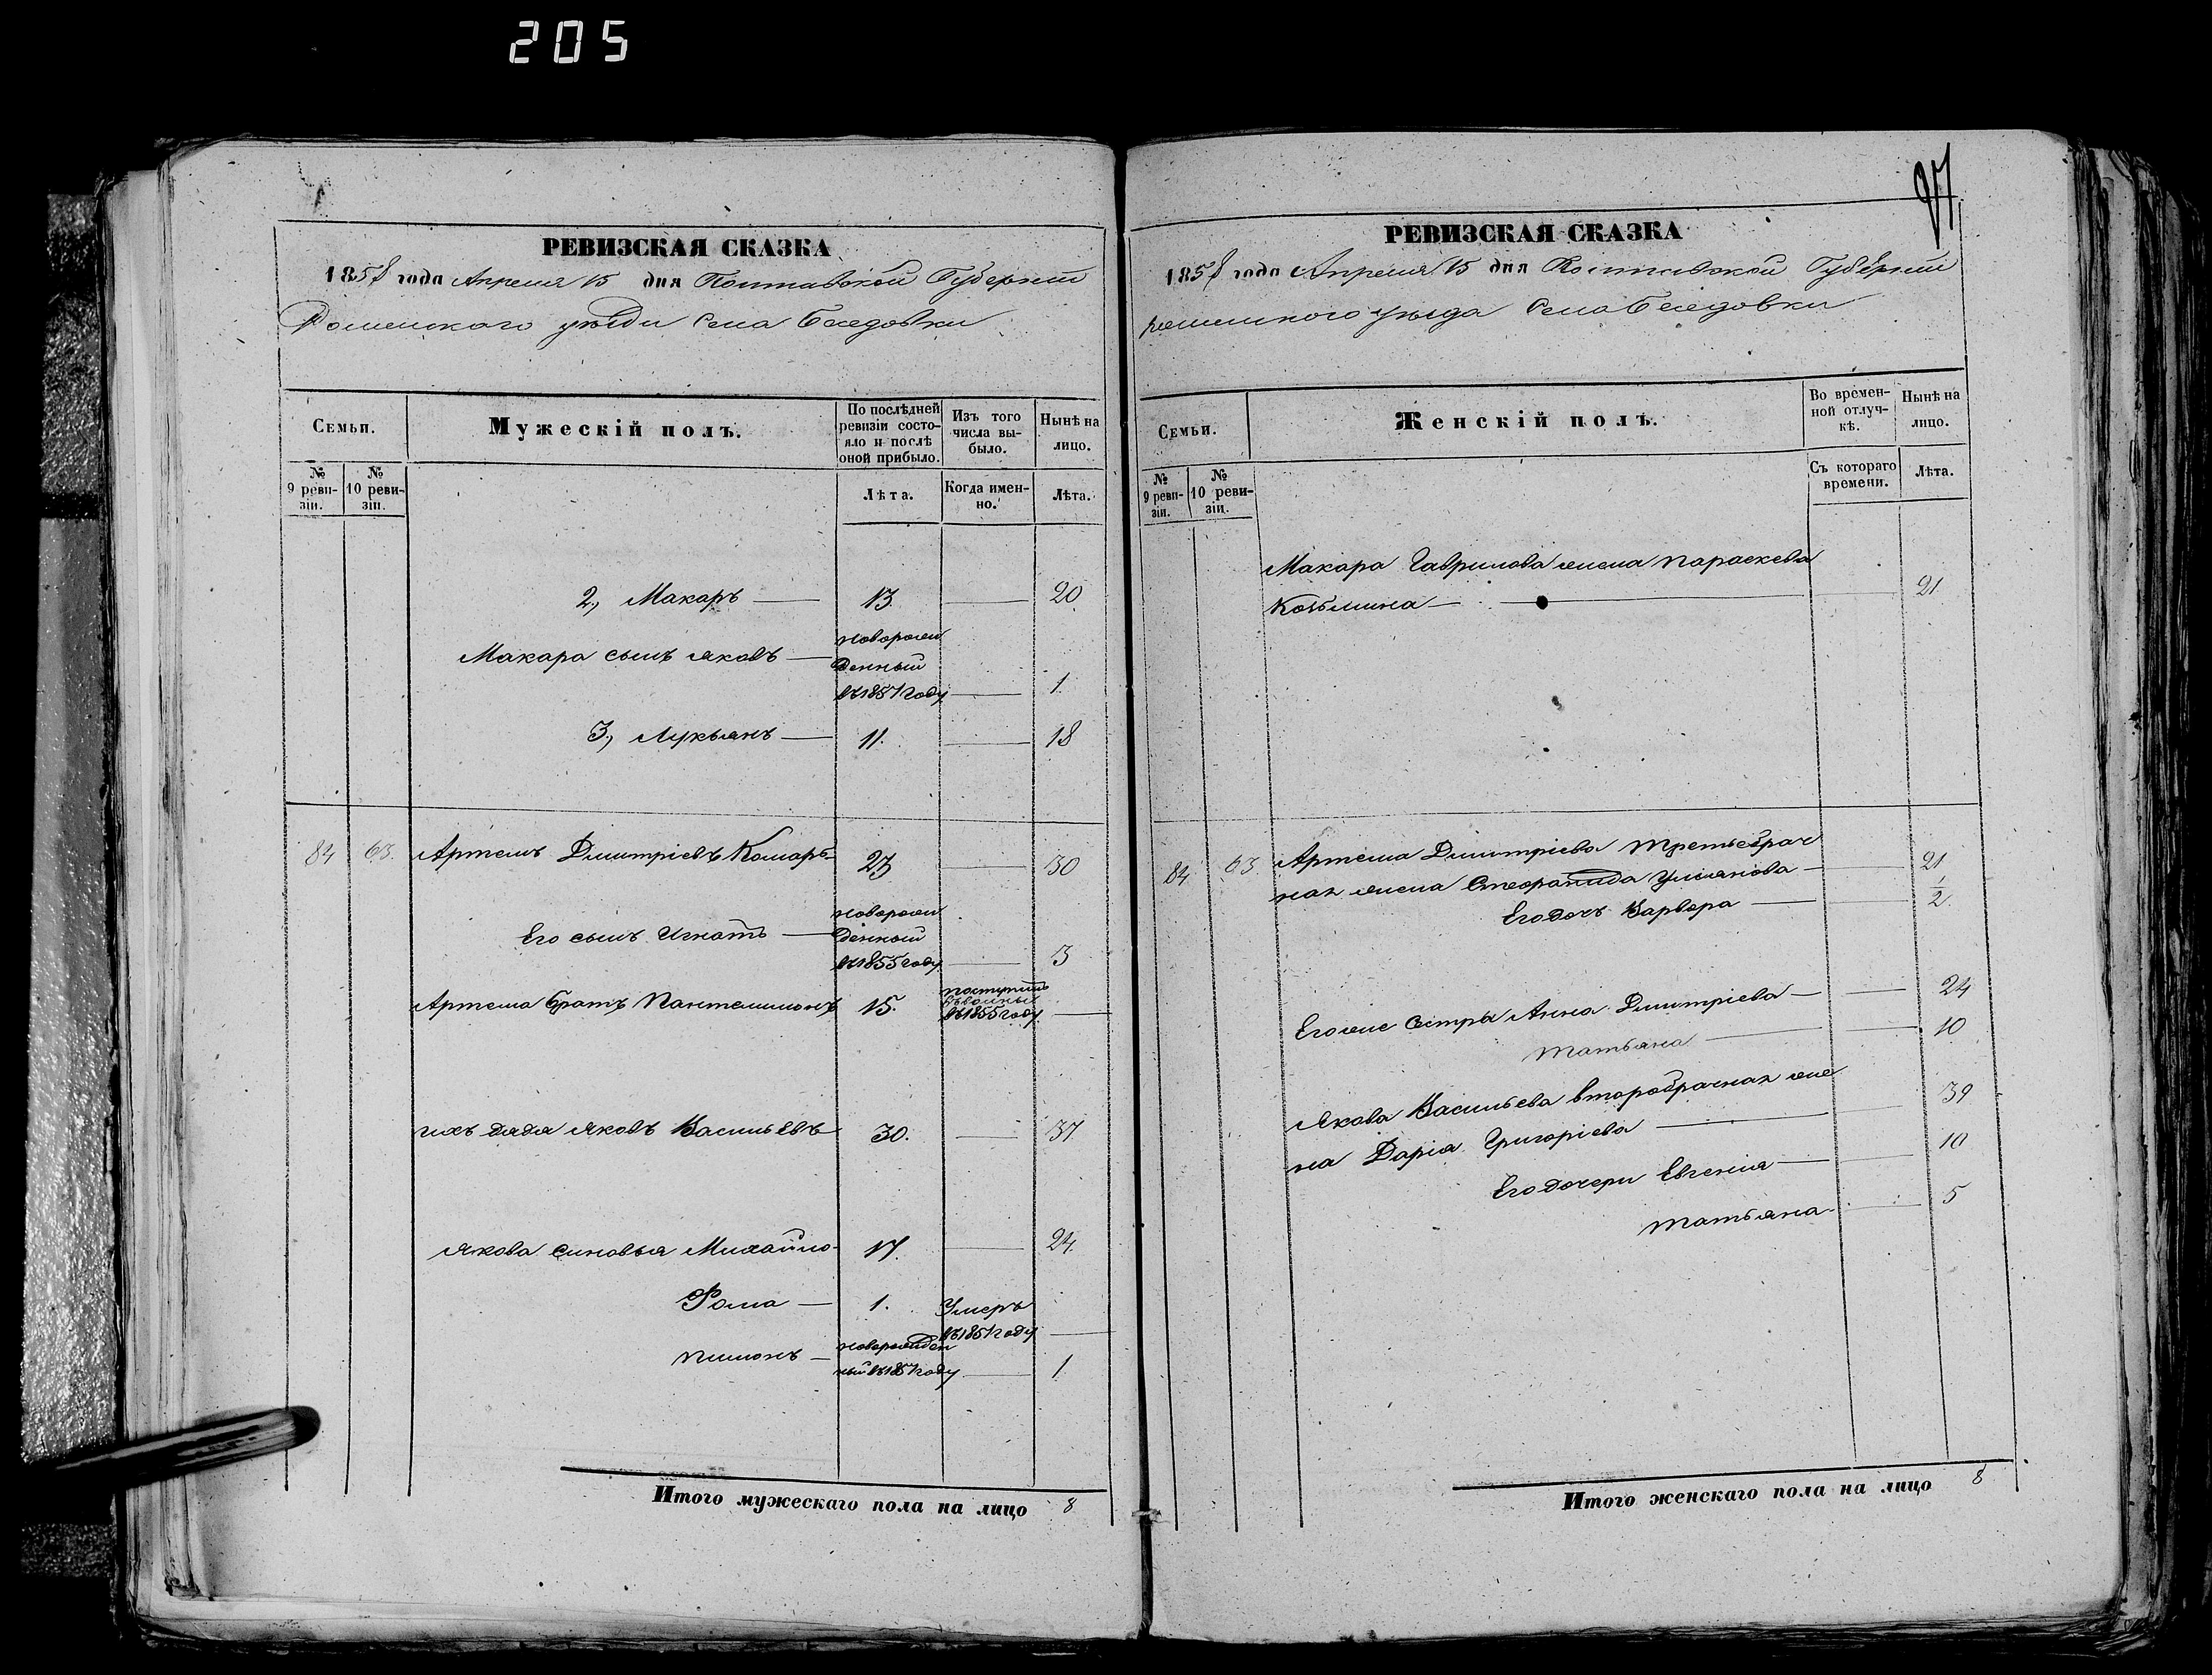 205
97
РЕВИЗСКАЯ СКАЗКА
1858 года Апреля 15 дня Полтавской Губернии
Роменского уезди Села Беседовки
Семьи.
Мужескій полъ.
По послѣдней ревизіи состояло и послѣ оной прибыло.
Изъ того числа выбыло.
Нынѣ на лицо.
№ 9 ревизіи.
№ 10 ревизіи.
Лѣта.
Когда именно.
Лѣта.
2, Макаръ — 13. — 20
Макара сынъ Яковъ — новорожденный въ 1857 году — 1.
3, Лукьянъ — 11. — 18
84 63. Артемъ Дмитріевъ Комаръ — 23 — 30
Его сынъ Игнатъ — новорожденный въ 1855 году — 3
Артема братъ Пантелимонъ 15. поступилъ въ 1855 году —
ихъ дядя Яковъ Васильевъ 30. — 37
Якова синовья Михайло 17. — 24
Фома — 1. Умеръ въ 1851 году —
Пимонъ — новорожденный въ 1857 году — 1
Итого мужескаго пола на лицо 8
РЕВИЗСКАЯ СКАЗКА
1858 года Апреля 15 дня Полтавской Губерніи
роменского уезда Села Беседовки
Семьи.
Женскій полъ.
Во временной отлучкѣ.
Нынѣ на лицо.
№ 9 ревизіи.
№ 10 ревизіи.
Съ котораго времени.
Лѣта.
Макара Гаврилова жена Параскева
Козьмина — — 21
84 63 Артема Дмитріева Третьебрач
ная жена Стефанида Ульянова — 21
Его дочь Варвара — 1/2
Его же сестры Анна Дмитріева — 24
Татьяна — 10
Якова Васильева второбрачная же
на Дарія Григоріева — 39
Его дочери Евгенія — 10
Татьяна — 5
Итого женскаго пола на лицо 8